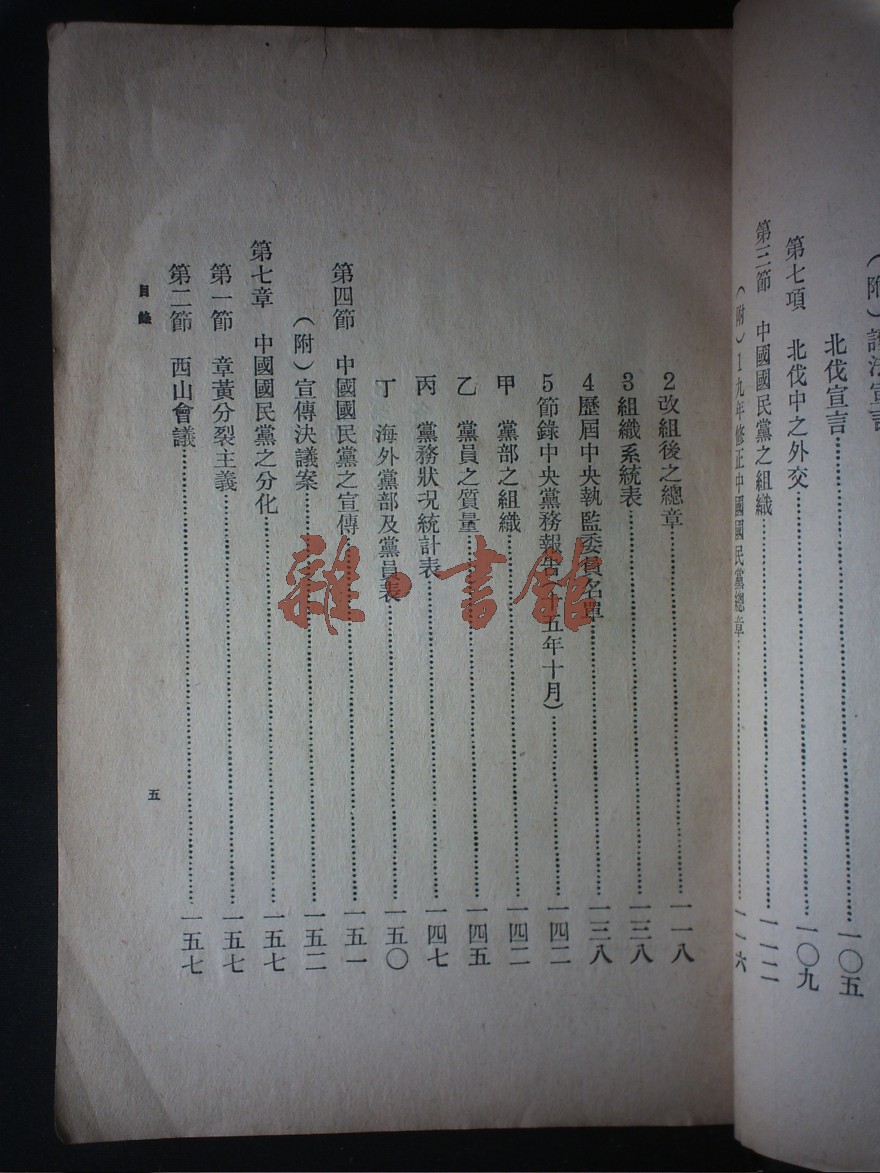 (附)護法宣言
北伐宣言……一〇五
第七項 北伐中之外交……一〇九
第三節 中國國民黨之組織……一一二
(附)1九年修正中國國民黨總章……一一六
2改組後之總章……一一八
3組織系統表……一三八
4歷屆中央執監委員名單……一三八
5節錄中央黨務報告(十五年十月)……一四二
甲 黨部之組織……一四二
乙 黨員之質量……一四五
丙 黨務狀況統計表……一四七
丁 海外黨部及黨員表……一五〇
第四節 中國國民黨之宣傳……一五一
(附)宣傳決議案……一五二
第七章 中國國民黨之分化……一五七
第一節 章黃分裂主義……一五七
第二節 西山會議……一五七
目錄
五
雜·書館